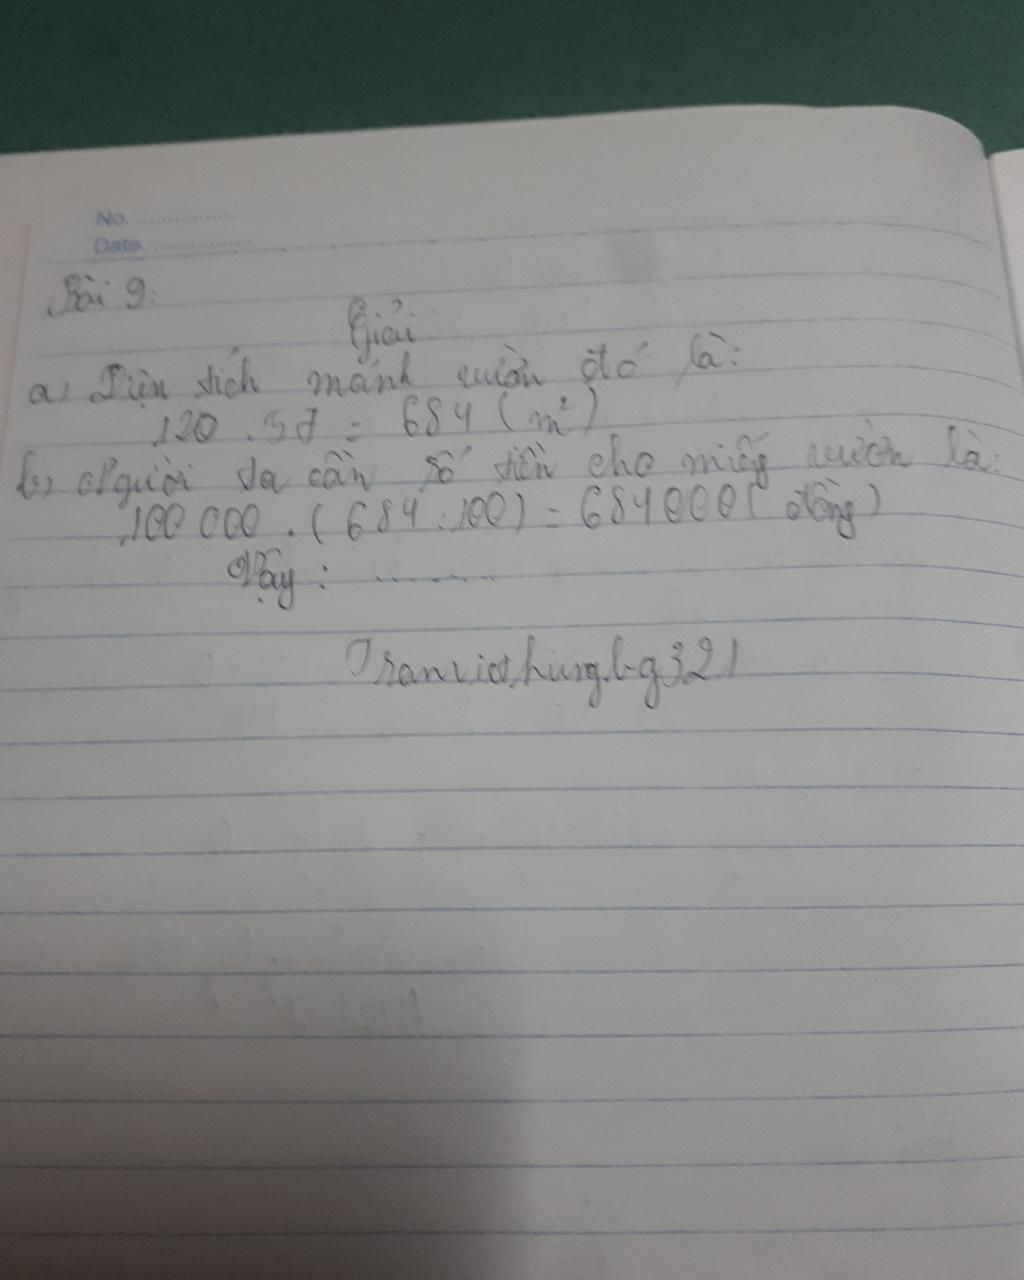 No. ................
Date ................
Bài 9:
Giải
a, Diện tích mảnh vườn đó là:
120 . 57 = 684 (m²)
b, Người ta cần số tiền cho miếng vườn là:
100 000 . (684 : 100) = 684 000 (đồng)
Vậy : ..........